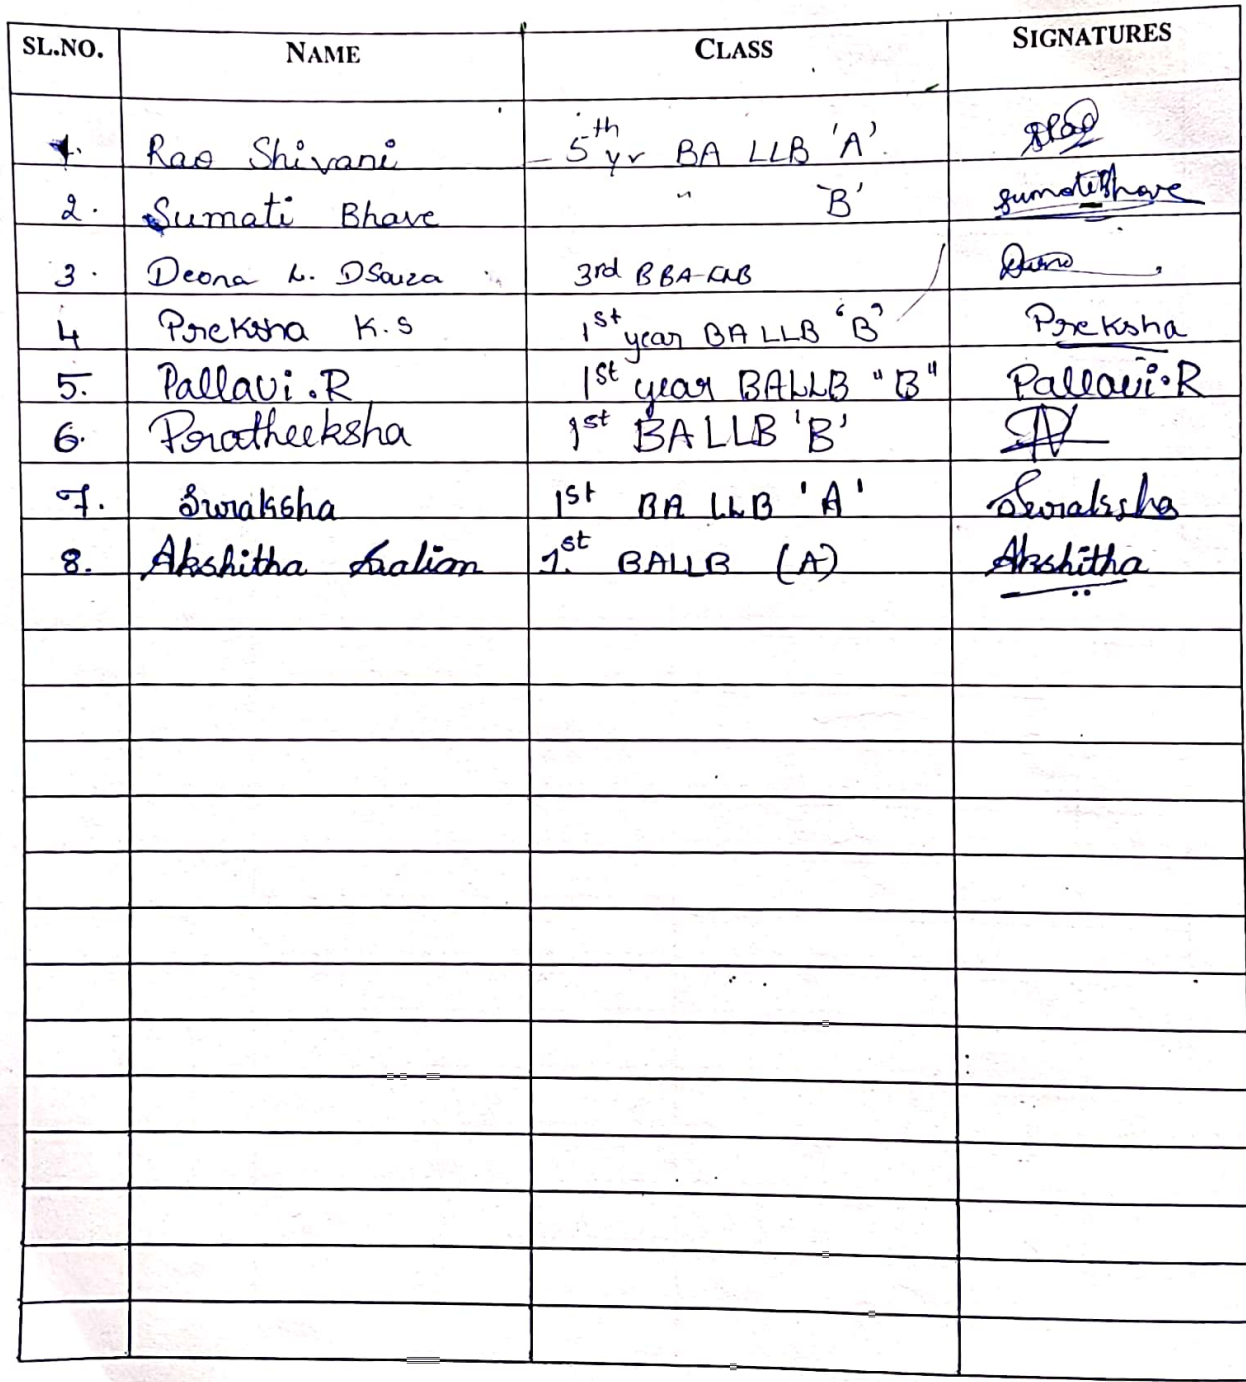 SL.NO. NAME CLASS SIGNATURES
1. Rao Shivani 5th yr BA LLB 'A'
2. Sumati Bhave " 'B' Sumati Bhave
3. Deona L. DSouza 3rd BBA-LLB
4 Preksha K.S 1st year BA LLB "B" Preksha
5. Pallavi.R 1st year BALLB "B" Pallavi.R
6. Pratheeksha 1st BA LLB 'B'
7. Suraksha 1st BA LLB 'A' Suraksha
8. Akshitha 1st BALLB (A) Akshitha